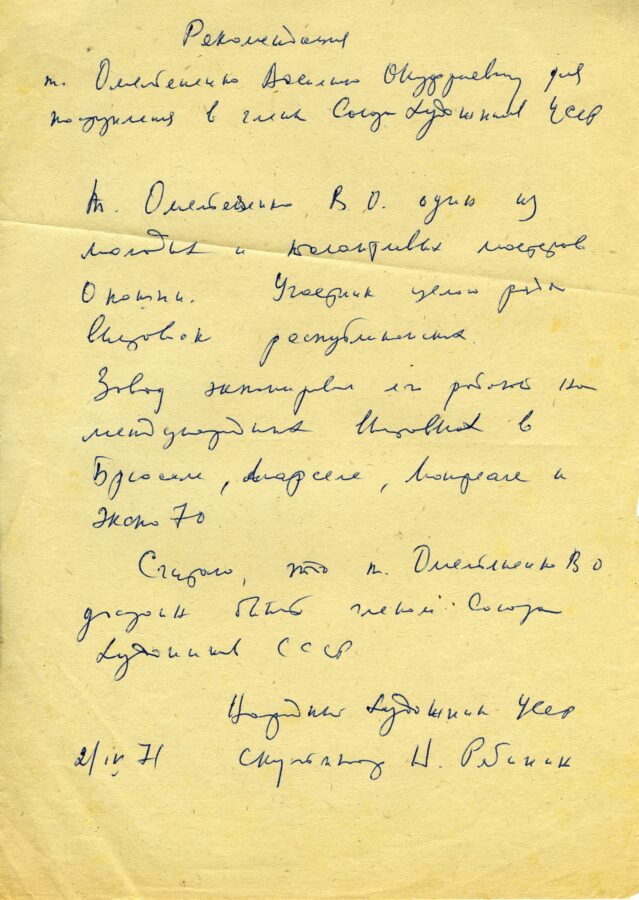 Рекомендация
т. Омельяненко Василию Онуфриевичу для
поступления в члены Союза Художников УССР
т. Омельяненко В. О. один из
молодых и талантливых мастеров
Опошни. Участник целого ряда
выставок республиканских.
Завод экспонировал его работы на
международных выставках в
Брюселе, Марселе, Монреале и
Экспо 70
Считаю, что т. Омельяненко В О
достоин быть членом Союза
Художников СССР
Народный Художник УССР
2/IV 71 Скульптор